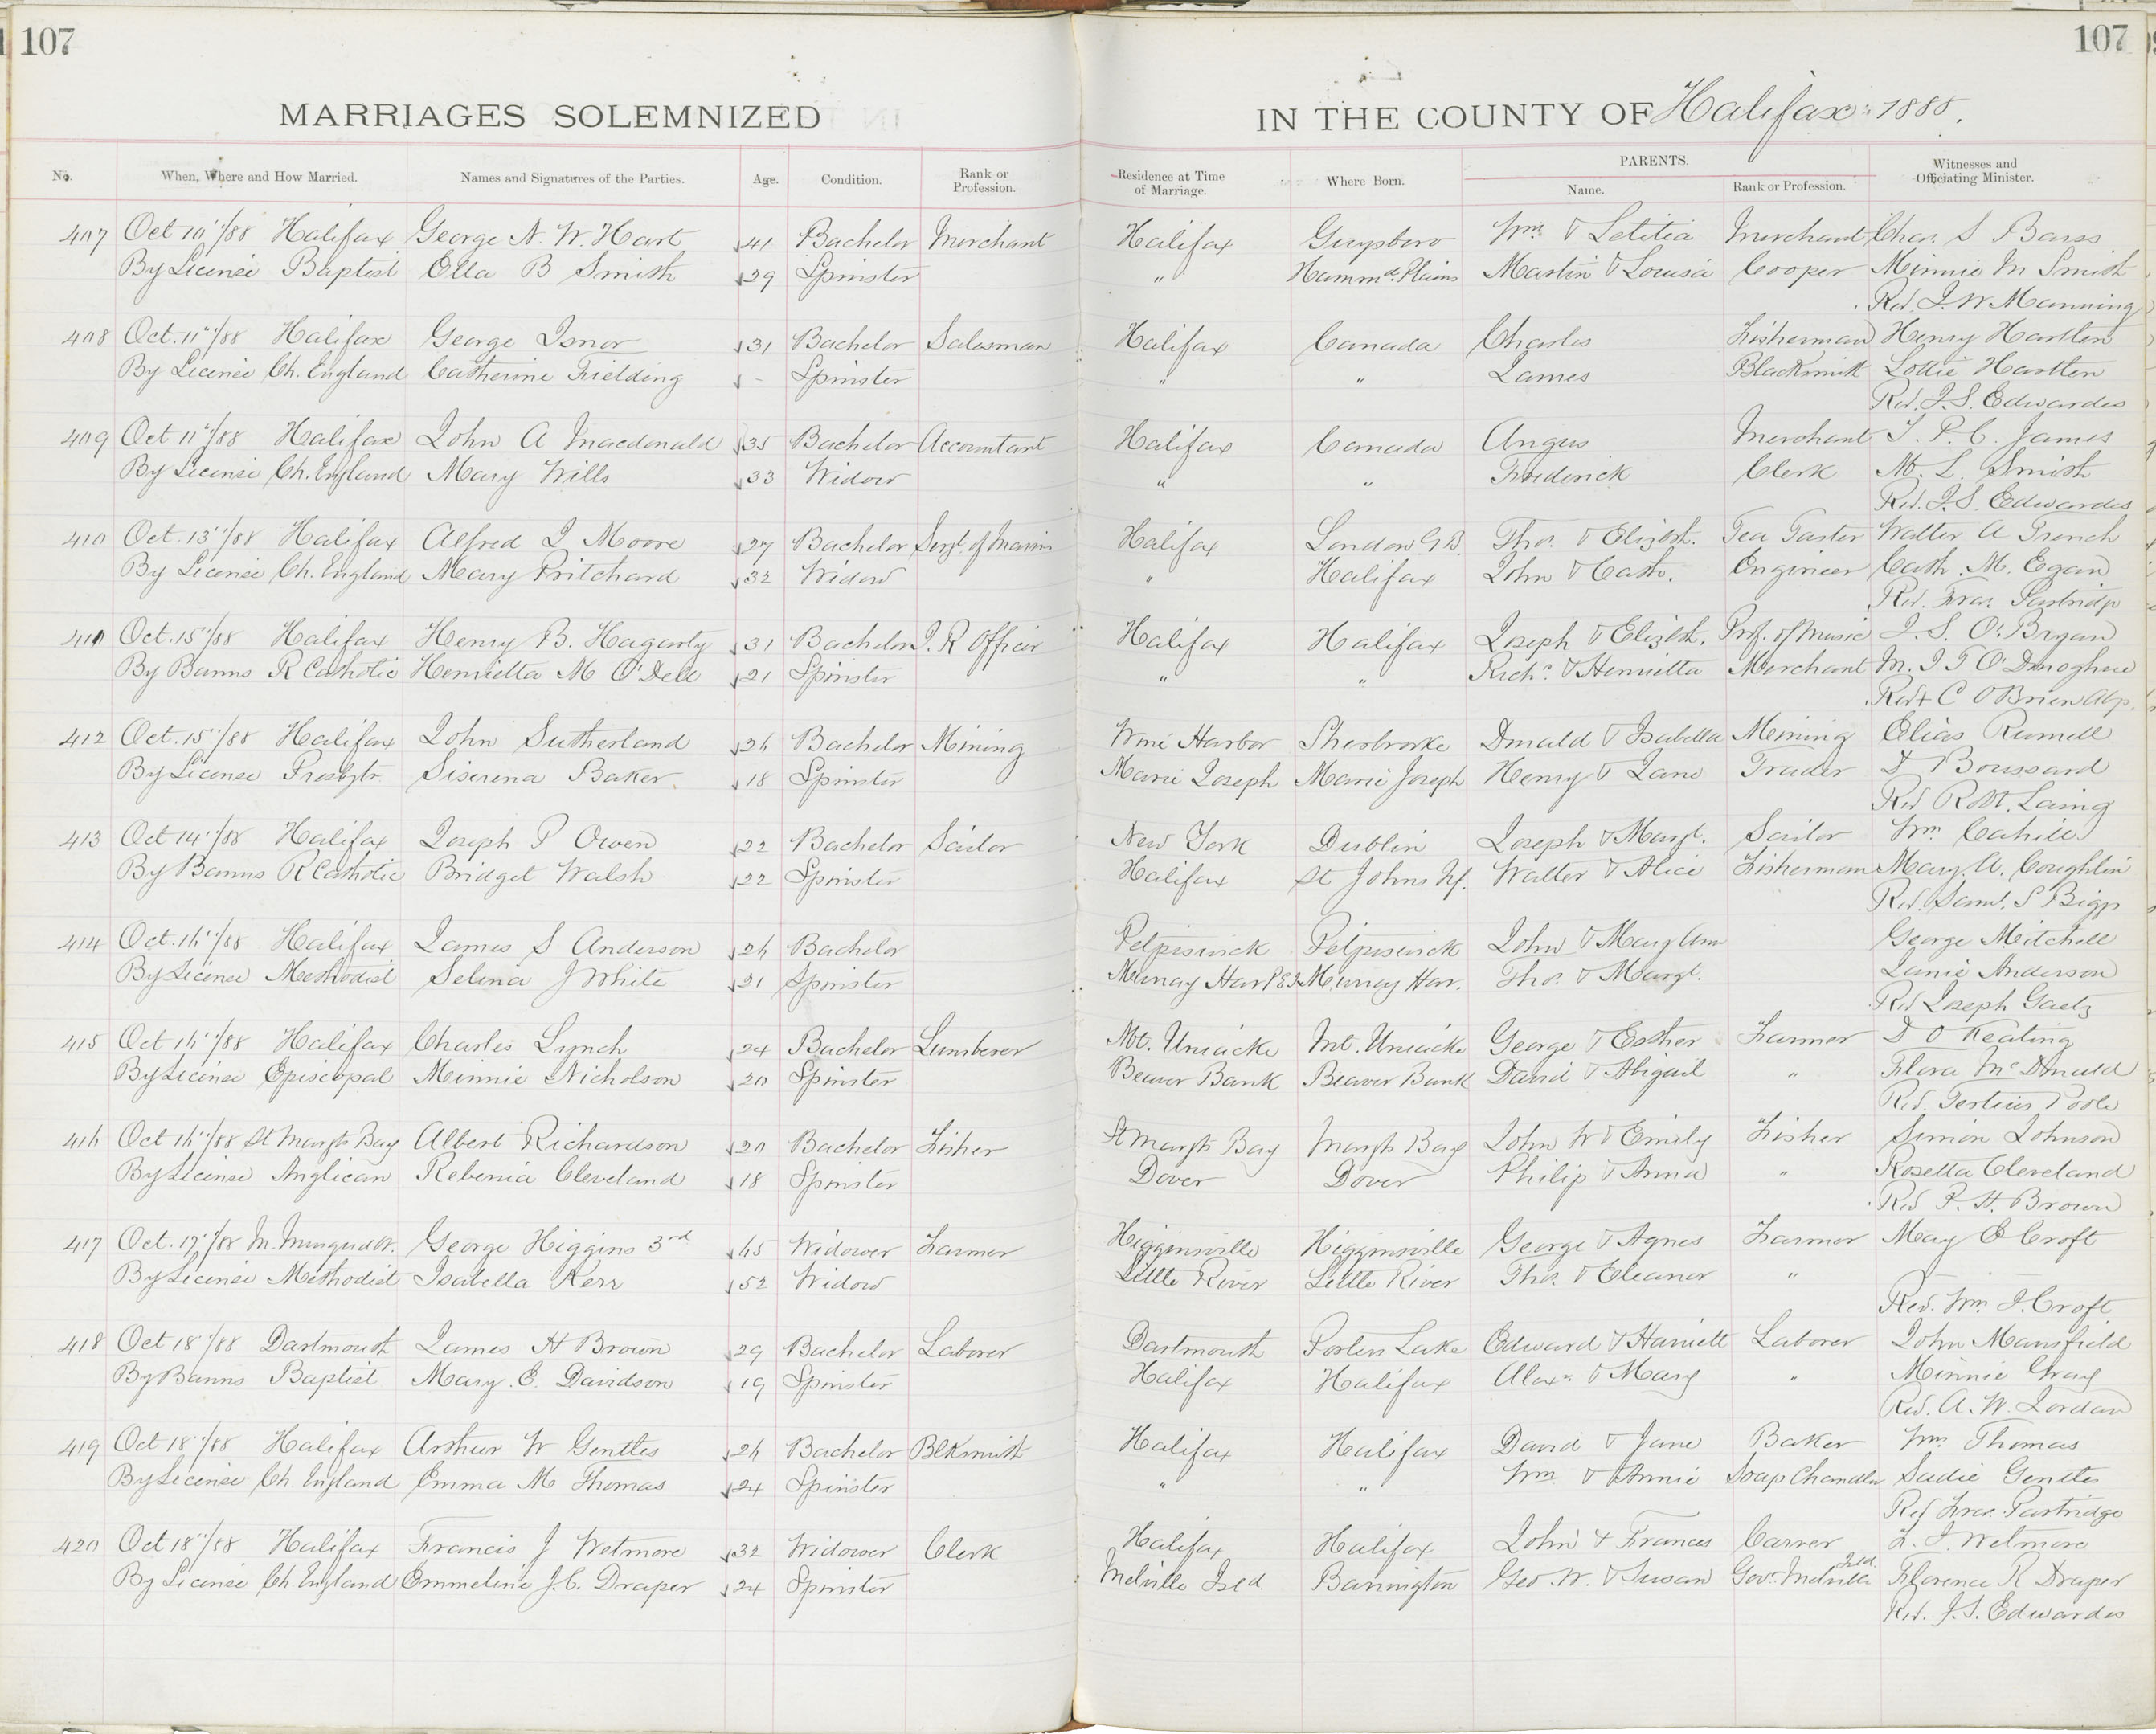 107
107
MARRIAGES SOLEMNIZED
IN THE COUNTY OF Halifax 1888.
No. When, Where and How Married. Names and Signatures of the Parties. Age. Condition. Rank or Profession. Residence at Time of Marriage. Where Born. PARENTS. Name. Rank or Profession. Witnesses and Officiating Minister.
407 Oct 10"/88 Halifax George N. W. Hart 41 Bachelor Merchant Halifax Guysboro Wm & Letitia Merchant Chas. S Barss
By License Baptist Ella B Smith 29 Spinster " Hammd. Plains Martin & Louisa Cooper Minnie M Smith
Rev. J. W. Manning
408 Oct. 11"/88 Halifax George Isnor 31 Bachelor Salesman Halifax Canada Charles Fisherman Henry Hartlen
By License Ch. England Catherine Fielding - Spinster " " James Blacksmith Lottie Hartlen
Rev. J. S. Edwardes
409 Oct 11"/88 Halifax John A Macdonald 35 Bachelor Accountant Halifax Canada Angus Merchant T. P. C. James
By License Ch. England Mary Wills 33 Widow " " Frederick Clerk M. L. Smith
Rev. J. S. Edwardes
410 Oct. 13"/88 Halifax Alfred J Moore 27 Bachelor Sergt. of Marin Halifax London G B. Thos. & Elizbth. Tea Taster Walter A French
By License Ch. England Mary Pritchard 32 Widow " Halifax John & Cath. Engineer Cath. M. Egan
Rev. Fras. Partridge
411 Oct. 15"/88 Halifax Henry B. Hagarty 31 Bachelor I. R Officer Halifax Halifax Joseph & Elizbth. Prof. of Music J. S. O'Bryan
By Banns R Catholic Henrietta M O'Dell 21 Spinster " " Richd. & Henrietta Merchant M. J T O'Donoghue
Rev + C O Brien Abp.
412 Oct. 15"/88 Halifax John Sutherland 26 Bachelor Mining Wine Harbor Sherbrooke Donald & Isabella Mining Elias Rumell
By License Presbytr. Siserena Baker 18 Spinster Marie Joseph Marie Joseph Henry & Jane Trader D Boussard
Rev Robt. Laing
413 Oct 14"/88 Halifax Joseph P Owen 22 Bachelor Sailor New York Dublin Joseph & Margt. Sailor Wm Cahill
By Banns R Catholic Bridget Walsh 22 Spinster Halifax St Johns Nf. Walter & Alice Fisherman Mary. A. Coughlin
Rev. Saml. S Biggs
414 Oct. 16"/88 Halifax James S Anderson 26 Bachelor Petpiswick Petpiswick John & Mary Ann George Mitchell
By License Methodist Selena J White 21 Spinster Murray Har P E I Murray Har. Thos. & Margt. Janie Anderson
Rev Joseph Gaetz
415 Oct 16"/88 Halifax Charles Lynch 24 Bachelor Lumberer Mt. Uniacke Mt. Uniacke George & Esther Farmer D O Keating
By License Episcopal Minnie Nicholson 20 Spinster Beaver Bank Beaver Bank David & Abigail " Flora McDonald
Rev. Tertius Poole
416 Oct 16"/88 St Margts Bay Albert Richardson 20 Bachelor Fisher St Margts Bay Margts Bay John W & Emily Fisher Simon Johnson
By License Anglican Rebenia Cleveland 18 Spinster Dover Dover Philip & Anna " Rosetta Cleveland
Rev P. H. Brown
417 Oct. 17"/88 M. George Higgins 3rd 65 Widower Farmer Higginsville Higginsville George & Agnes Farmer May E Croft
By License Methodist Isabella Kerr 52 Widow Little River Little River Thos. & Eleanor "
Rev. Wm. J. Croft
418 Oct 18"/88 Dartmouth James H Brown 29 Bachelor Laborer Dartmouth Porters Lake Edward & Harriett Laborer John Mansfield
By Banns Baptist Mary. E. Davidson 19 Spinster Halifax Halifax Alexr. & Mary " Minnie Gray
Rev. A. W. Jordan
419 Oct 18"/88 Halifax Arthur W Gentles 26 Bachelor Blksmith Halifax Halifax David & Jane Baker Wm. Thomas
By License Ch. England Emma M Thomas 24 Spinster " " Wm & Annie Soap Chandler Sadie Gentles
Rev Fras. Partridge
420 Oct 18"/88 Halifax Francis J Wetmore 32 Widower Clerk Halifax Halifax John & Frances Carver L. J. Wetmore
By License Ch England Emmeline J. C. Draper 24 Spinster Melville Isld. Barrington Geo. W. & Susan Govr. Melville Isld. Florence R Draper
Rev. J. S. Edwardes